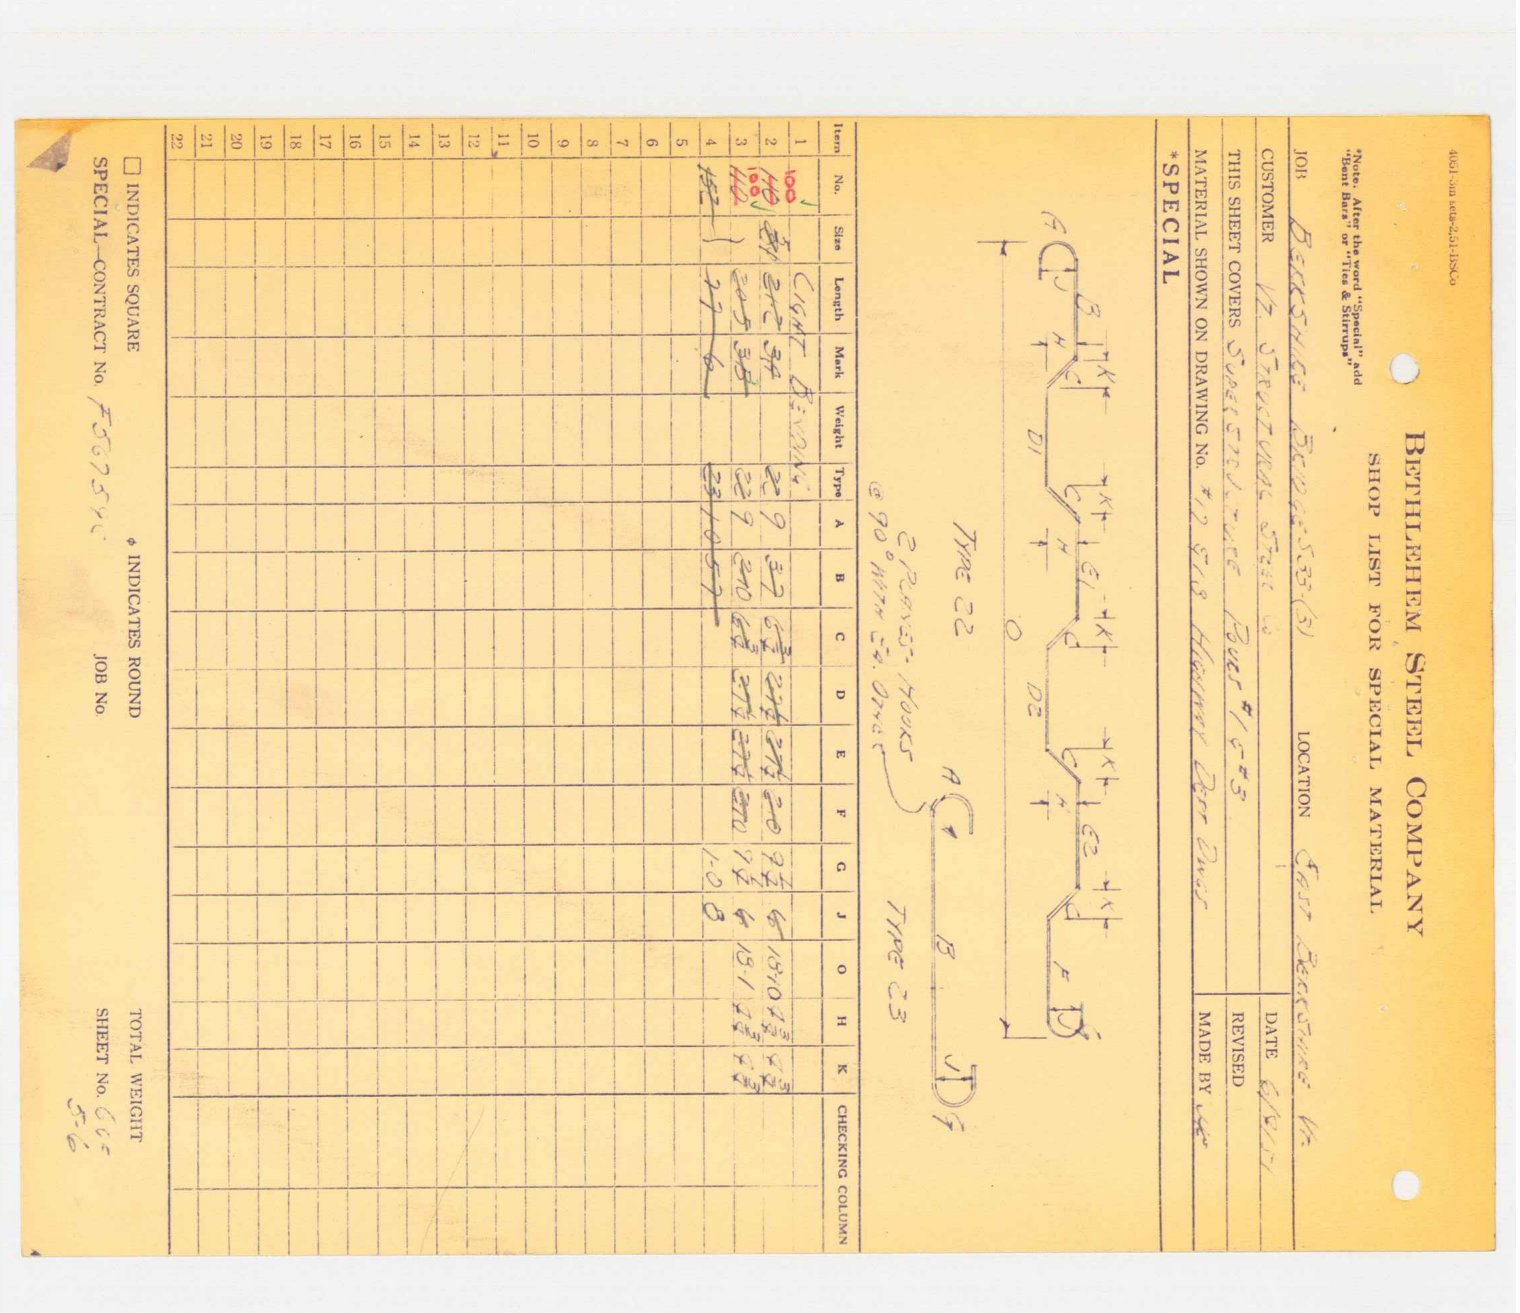 4051-5m sets-2.51-BSCo
BETHLEHEM STEEL COMPANY
SHOP LIST FOR SPECIAL MATERIAL
*Note. After the word "Special" add
"Bent Bars" or "Ties & Stirrups"
JOB BERKSHIRE BRIDGE LOCATION EAST BERKSHIRE Vt.
CUSTOMER Vt. STRUCTURAL STEEL Co DATE 6/8/51
THIS SHEET COVERS SUPERSTRUCTURE POURS #1 & #3 REVISED
MATERIAL SHOWN ON DRAWING No. #17 & 18 HIGHWAY DEPT DWGS MADE BY
*SPECIAL
K K K K
A B H C D1 C H E1 C D2 C H E2 C F
J
O
TYPE 22
2 PLANES - HOOKS
@ 90° WITH EA. OTHER
A B J G
TYPE 23
Item No. Size Length Mark Weight Type A B C D E F G J O H K CHECKING COLUMN
1 100 LIGHT BENDING
2 110 212 3A 22 9 37 6¾ 20 9½ 6 18-10 4¾ 4¾
3 100 110 205 3B 22 9 210 6¾ 210 9½ 6 18-1 4¾ 4¾
4 152 27 6 23 10 57 1-0 8
5
6
7
8
9
10
11
12
13
14
15
16
17
18
19
20
21
22
☐ INDICATES SQUARE ϕ INDICATES ROUND TOTAL WEIGHT
SPECIAL—CONTRACT No. JOB No. SHEET No.
5-6